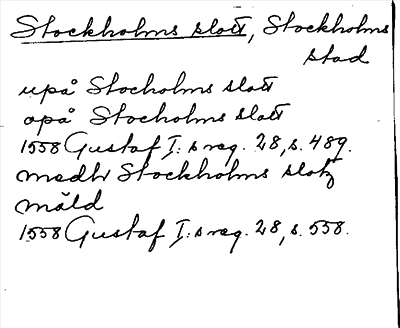 Stockholms slott, Stockholms
stad
upå Stocholms slott
opå Stocholms slott
1558 Gustaf I:s reg. 28, s. 489.
medh Stockholms slotz
mäld
1558 Gustaf I:s reg. 28, s. 558.